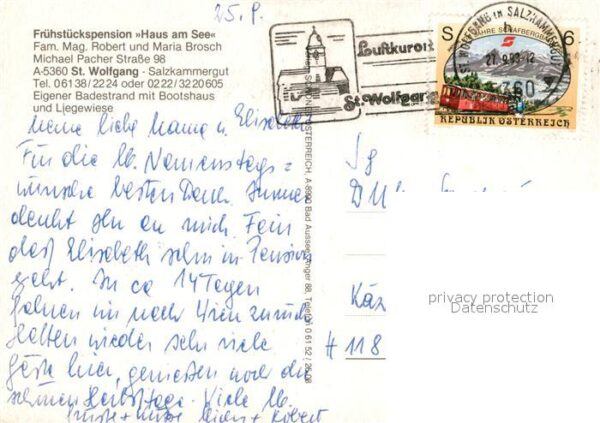 25.9.
Frühstückspension »Haus am See«
Fam. Mag. Robert und Maria Brosch
Michael Pacher Straße 98
A-5360 St. Wolfgang - Salzkammergut
Tel. 0 61 38 / 22 24 oder 02 22 / 32 20 605
Eigener Badestrand mit Bootshaus
und Liegewiese
Luftkurort
St. Wolfgang
ST. WOLFGANG IM SALZKAMMERGUT
5360
S 6
REPUBLIK ÖSTERREICH
Meine liebe Mama u. Elisabeth
Für die lb. Namenstags=
wünsche besten Dank. Immer
denkt Ihr an mich. Fein
daß Elisabeth schon in Pension
geht. In ca 14 Tagen
fahren wir nach Wien zurück
Hatten wieder sehr viele
Gäste hier, geniessen noch die
schönen Herbsttage. Viele lb.
Grüße + Küsse + Robert
ÖSTERREICH, A-8990 Bad Aussee
88, Telefon 0 61 52 /
# 118
privacy protection
Datenschutz